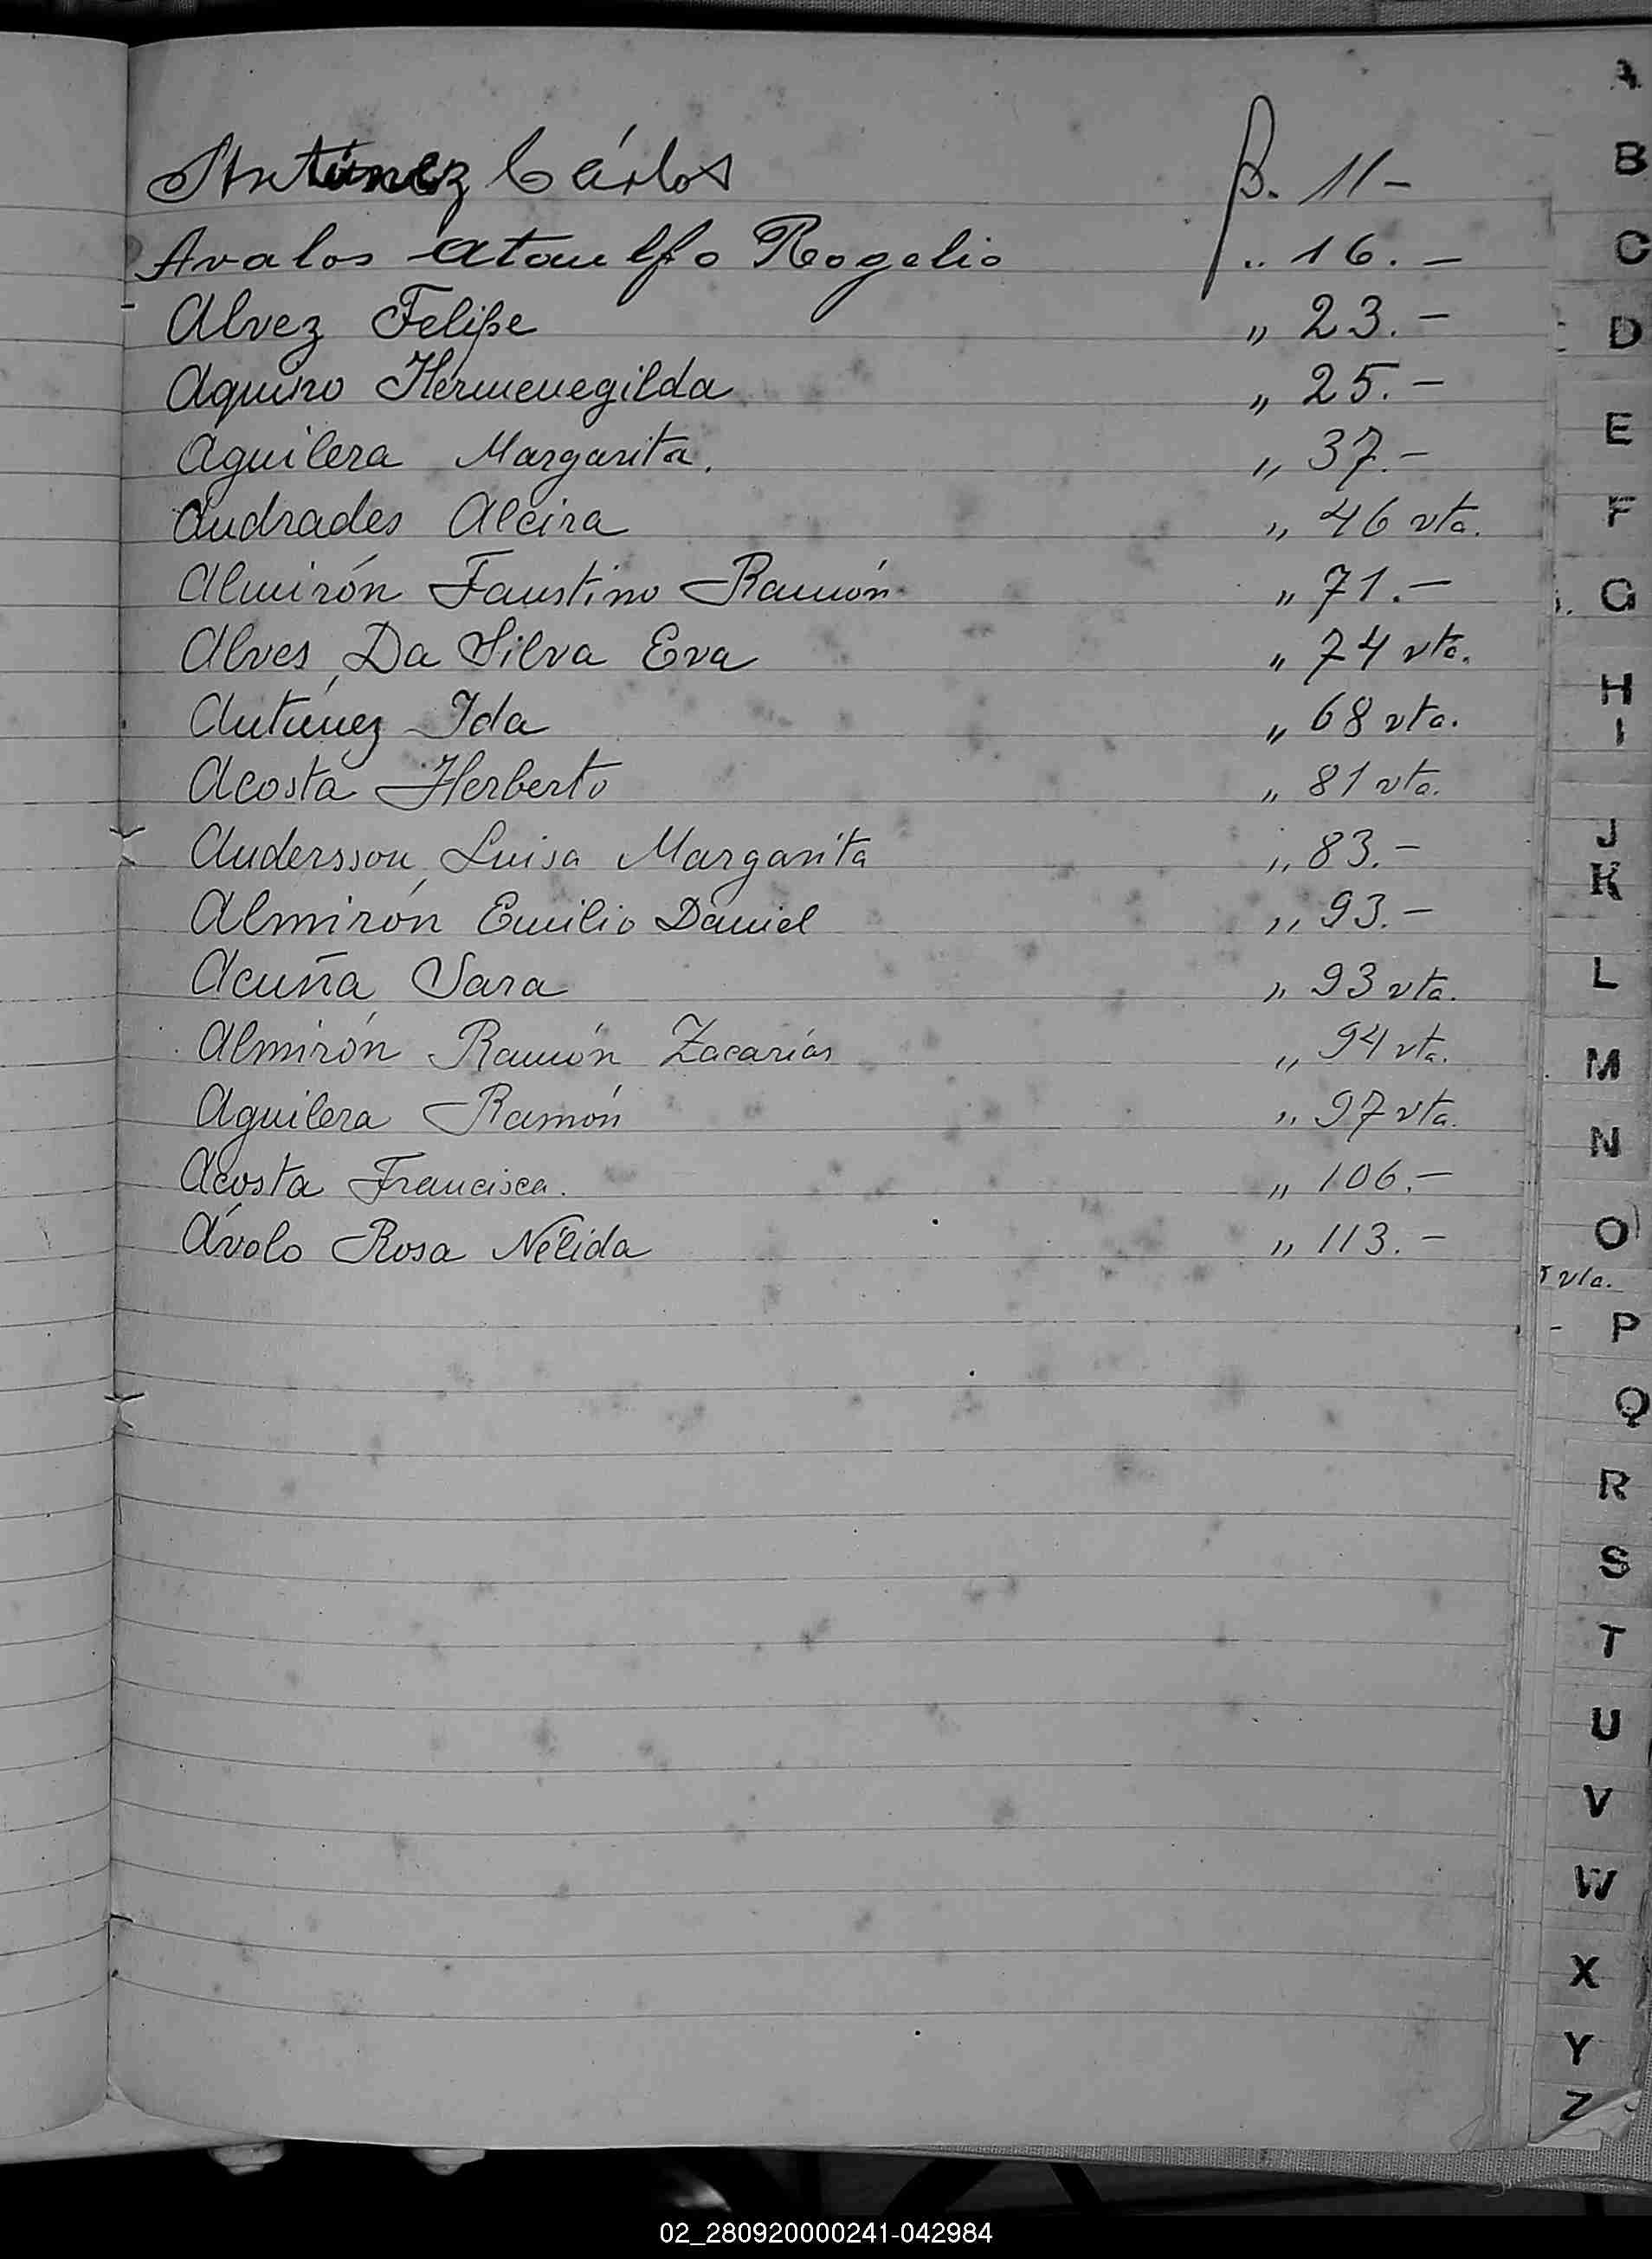 Antúnez Cárlos f. 11-
Avalos Ataulfo Rogelio " 16.-
Alvez Felipe " 23.-
Aquino Hermenegilda " 25.-
Aguilera Margarita. " 37.-
Andrades Alcira " 46 vta.
Almirón Faustino Ramón " 71.-
Alves Da Silva Eva " 74 vta.
Antúnez Ida " 68 vta.
Acosta Herberto " 81 vta.
Andersson, Luisa Margarita " 83.-
Almirón Emilio Daniel " 93.-
Acuña Sara " 93 vta.
Almirón Ramón Zacarías " 94 vta.
Aguilera Ramón " 97 vta.
Acosta Francisca. " 106.-
Ávolo Rosa Nélida " 113.-
A
B
C
D
E
F
G
H
I
J
K
L
M
N
O
vta.
P
Q
R
S
T
U
V
W
X
Y
Z
02_280920000241-042984